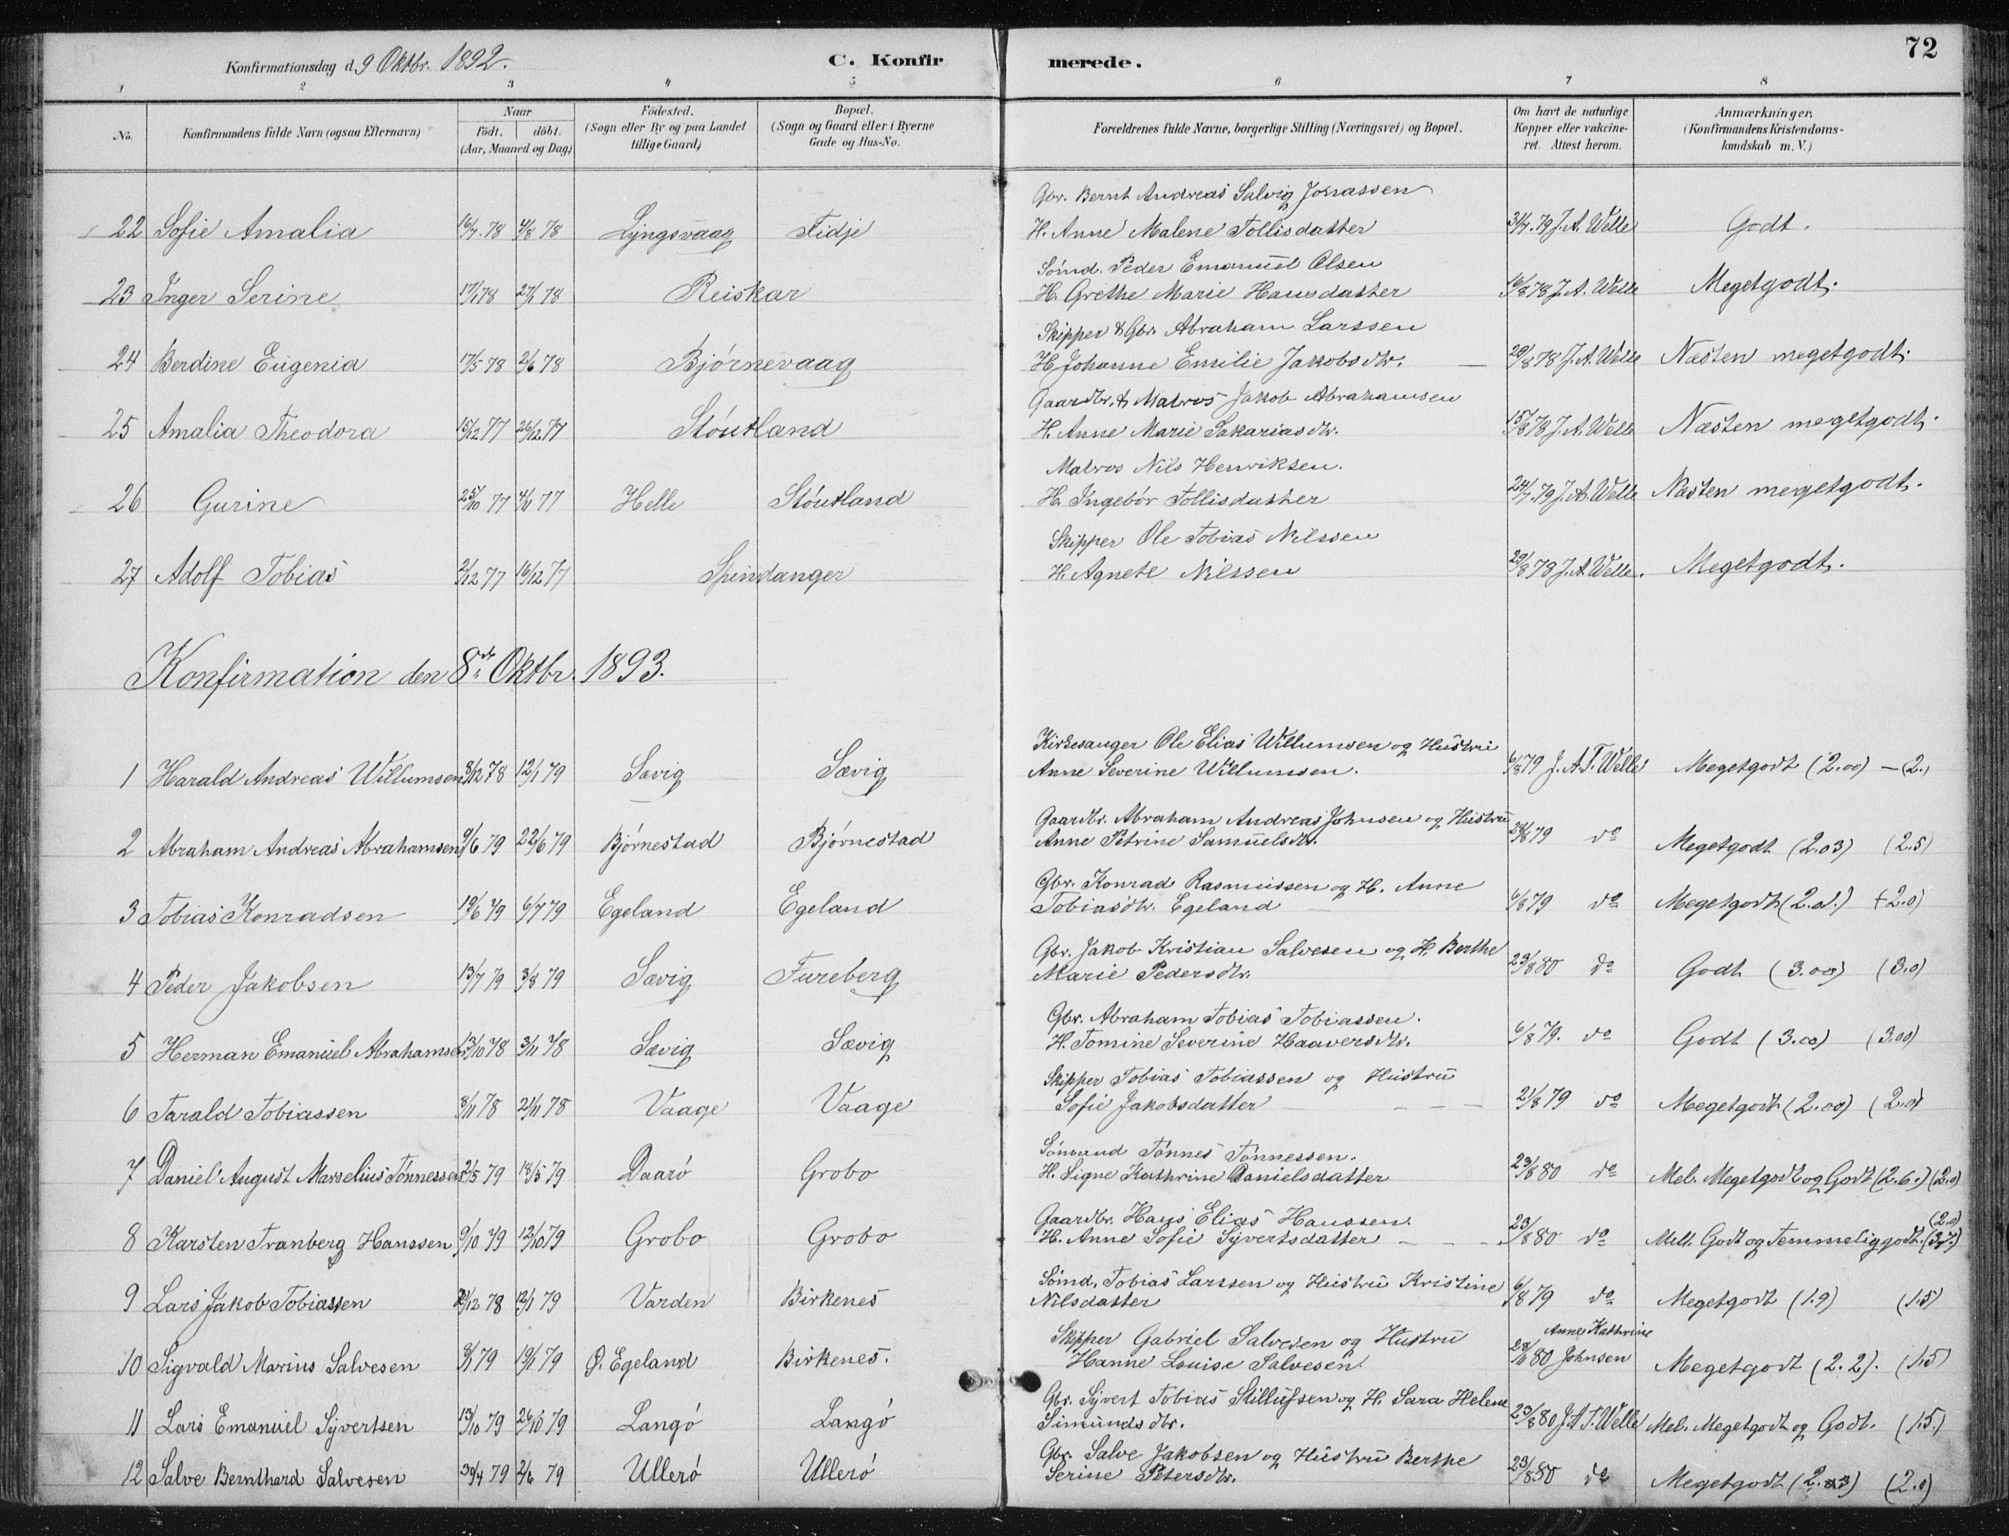 72
Konfirmationsdag d. 9 Oktbr. 1892.
C. Konfirmerede.
1 2 3 4 5 6 7 8
No. Konfirmandens fulde Navn (ogsaa Efternavn) Naar Födt. döbt. (Aar, Maaned og Dag) Födested. (Sogn eller By og paa Landet tillige Gaard) Bopæl. (Sogn og Gaard eller i Byerne Gade og Hus-No. Forældrenes fulde Navne, borgerlige Stilling (Næringsvei) og Bopæl. Om havt de naturlige Kopper eller vakcineret. Attest herom. Anmærkninger. (Konfirmandens Kristendomskundskab m. V.)
Gbr. Bernt Andreas Salvig Jonassen
22 Sofie Amalia 16/7.78 4/8 78 Lyngsvaag Fidje H. Anne Malene Tollisdatter 31/7.79 J. A. Welle Godt.
Sömd. Peder Emanuel Olsen
23 Inger Serine 17/1 78 27/1 78 Reiskar H. Grethe Marie Hansdatter 16/8 78 J. A. Welle Megetgodt.
Skipper & Gbr. Abraham Larssen
24 Berdine Eugenia 17/5 78 2/6 78 Bjørnevaag H. Johanne Emilie Jakobsdtr. 29/8 78 J. A. Welle Næsten megetgodt.
Gaardbr. & Matros Jakob Abrahamsen
25 Amalia Theodora 15/12 77 26/12 77 Stöutland H. Anne Marie Sakariasdtr. 15/8 78 J. A. Welle Næsten megetgodt.
Matros Nils Henriksen.
26 Gurine 25/10 77 4/11 77 Helle Stöutland H. Ingebör Tollisdatter 24/7.79 J. A. Welle Næsten megetgodt.
Skipper Ole Tobias Nilssen
27 Adolf Tobias 2/12 77 16/12 77 Spindanger H. Agnete Nilssen 29/8 78 J. A. Welle. Megetgodt.
Konfirmation den 8de Oktbr. 1893.
Kirkesanger Ole Elias Willumsen og Hustru
1 Harald Andreas Willumsen 8/12 78 12/1 79 Sævig Sævig Anne Severine Willumsen. 6/8 79 J. A. T. Welle Megetgodt (2.00) – (2.)
Gaardbr. Abraham Andreas Johnsen og Hustru
2 Abraham Andreas Abrahamsen 9/6 79 22/6 79 Bjørnestad Bjørnestad Anne Petrine Samuelsdtr. 79 do Megetgodt (2.03) (2.5)
Gbr. Konrad Rasmussen og H. Anne
3 Tobias Konradsen 79 6/7 79 Egeland Egeland Tobiasdtr. Egeland 6/8 79 do Megetgodt (2.0.) (2.0)
Gbr. Jakob Kristian Salvesen og H. Berthe
4 Peder Jakobsen 13/7 79 3/8 79 Sævig Fureberg Marie Pedersdtr. 23/8 80 do Godt (3.00) (3.0)
Gbr. Abraham Tobias Tobiassen.
5 Herman Emanuel Abrahamsen 13/10 78 3/11 78 Sævig Sævig H. Tomine Severine Haaversdtr. 6/8 79. do Godt (3.00) (3.00)
Skipper Tobias Tobiassen og Hustru
6 Tarald Tobiassen 8/11 78 21/11 78 Vaage Vaage Sofie Jakobsdatter 21/8 79 do Megetgodt (2.00) (2.0)
Sömand Tönnes Tönnessen.
7 Daniel August Marselius Tønnessen 2/5 79 18/5 79 Daarö Grobo H. Signe Kathrine Danielsdatter 23/8 80 do Mel. Megetgodt og Godt (2.6.) (2.0)
Gaardbr. Hans Elias Hanssen. (2.0)
8 Karsten Tranberg Hanssen 9/10 79 12/10 79 Grobo Grobo H. Anne Sofie Syvertsdatter 23/8 80 do Mell. Godt og Temmeliggodt. (3.7.)
Sömd. Tobias Larssen og Hustru Kristine
9 Lars Jakob Tobiassen 12 78 12/1 79 Varden Birkenes Nilsdatter 6/8 79 do Megetgodt (1.9) (1.5)
Skipper Gabriel Salvesen og Hustru Anne Kathrine
10 Sigvald Marius Salvesen 79 19/1 79 Ø. Egeland Birkenes. Hanne Louise Salvesen. 80 Johnsen Megetgodt (2.2). (1.5)
Gbr. Syvert Tobias Stillufsen og H. Sara Helene
11 Lars Emanuel Syvertsen 13/10 79 26/10 79 Langö Langö Simundsdtr. 23/8 80 J. A. T. Welle Mel. Megetgodt og Godt. (1.5.)
Gbr. Salve Jakobsen og Hustru Berthe
12 Salve Bernthard Salvesen 30/4 79 2/6 79 Ullerö Ullerö Serine Petersdtr. 23/8 80 do Megetgodt (2.03) (2.0)